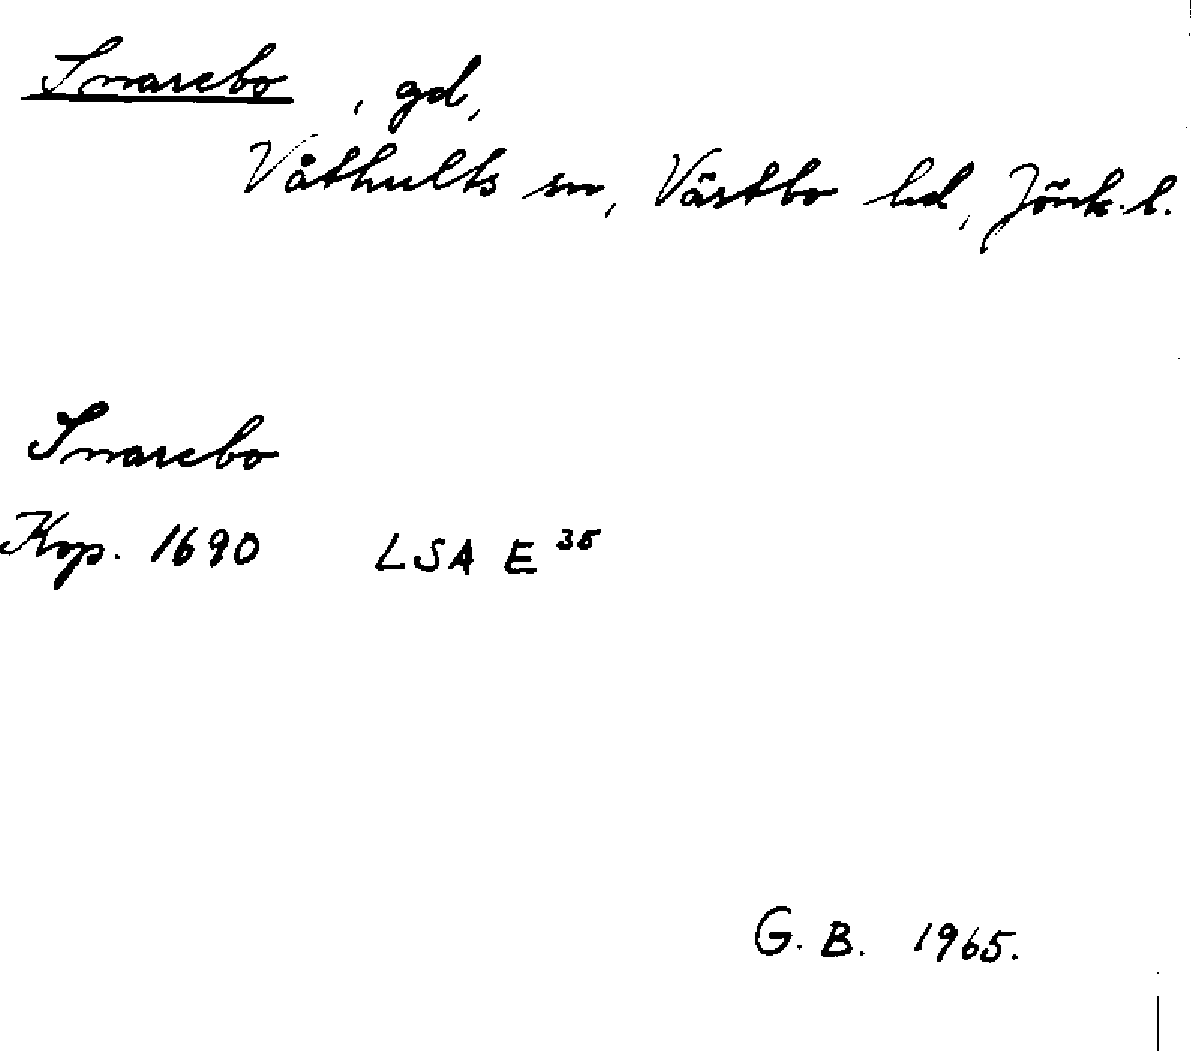 Snarebo, gd,
Våthults sn, Västbo hd, Jönk. l.
Snarebo
Kop. 1690 LSA E 35
G. B. 1965.